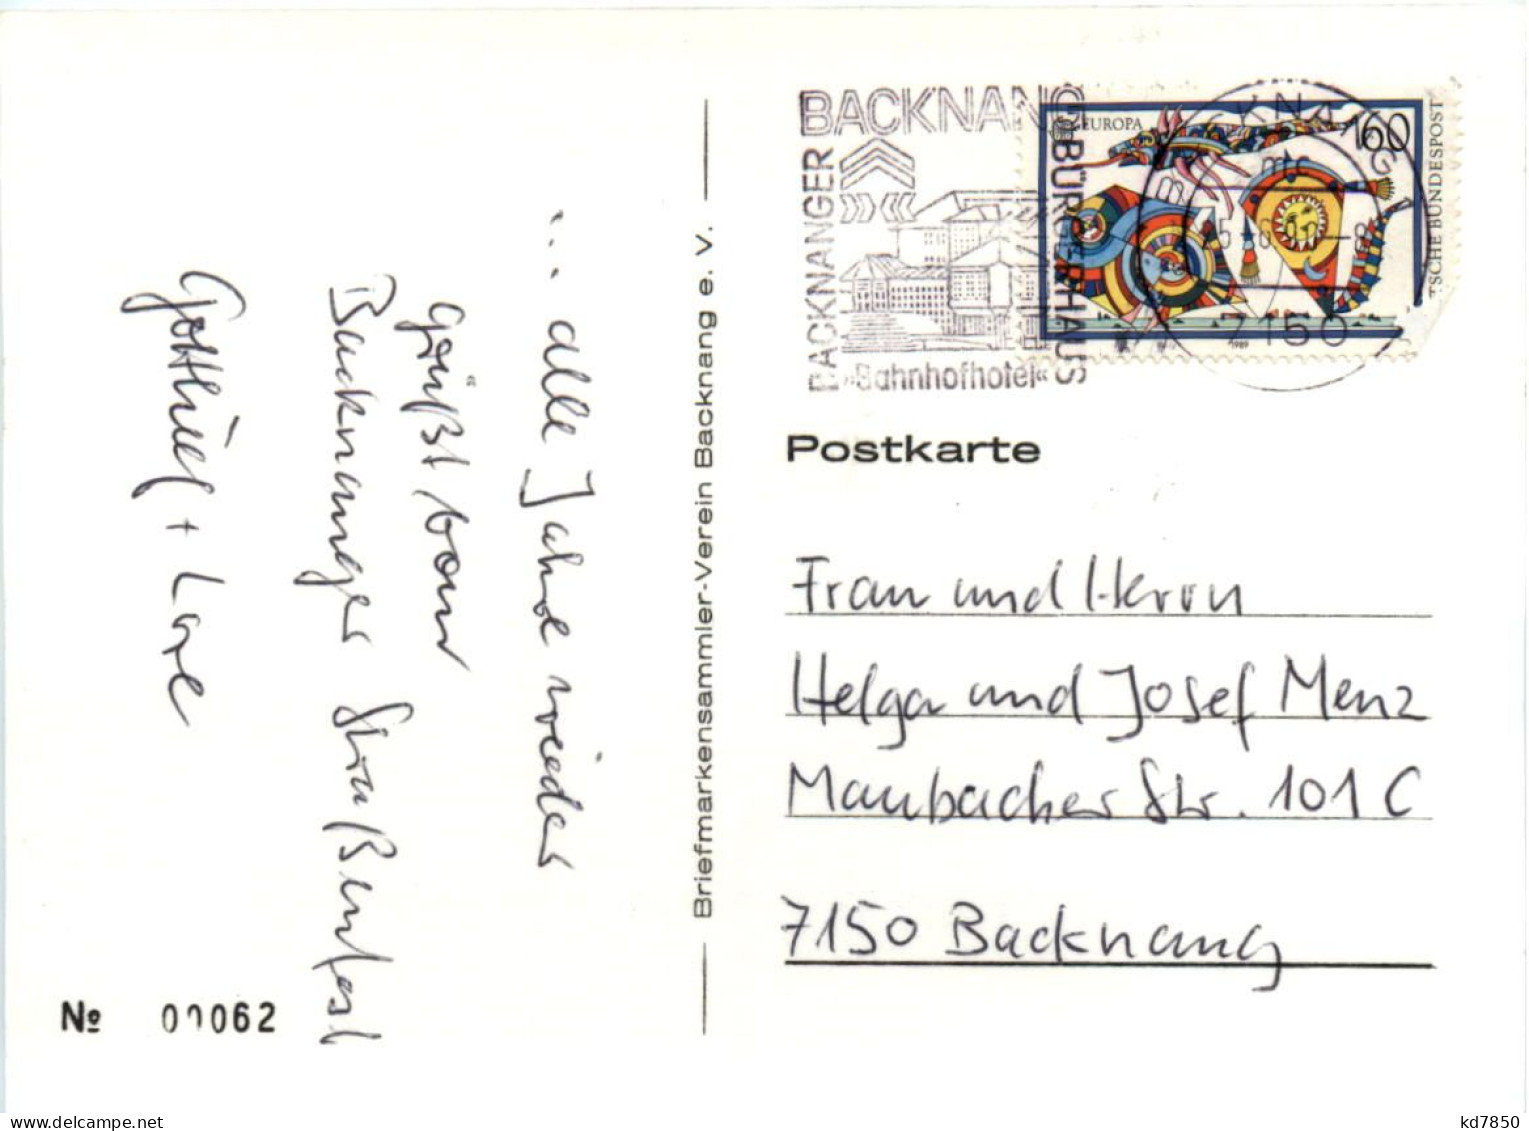 ... alle Jahre wieder
grüßt vom
Backnanger Straßenfest
Gotthilf + Lore
Nº 00062
Briefmarkensammler-Verein Backnang e. V.
BACKNANG
BACKNANGER
BÜRGERHAUS
»Bahnhofhotel«
EUROPA
160
TSCHE BUNDESPOST
1989
KNANG
7150
Postkarte
Frau und Herrn
Helga und Josef Menz
Maubacher Str. 101 C
7150 Backnang
www.delcampe.net
kd7850